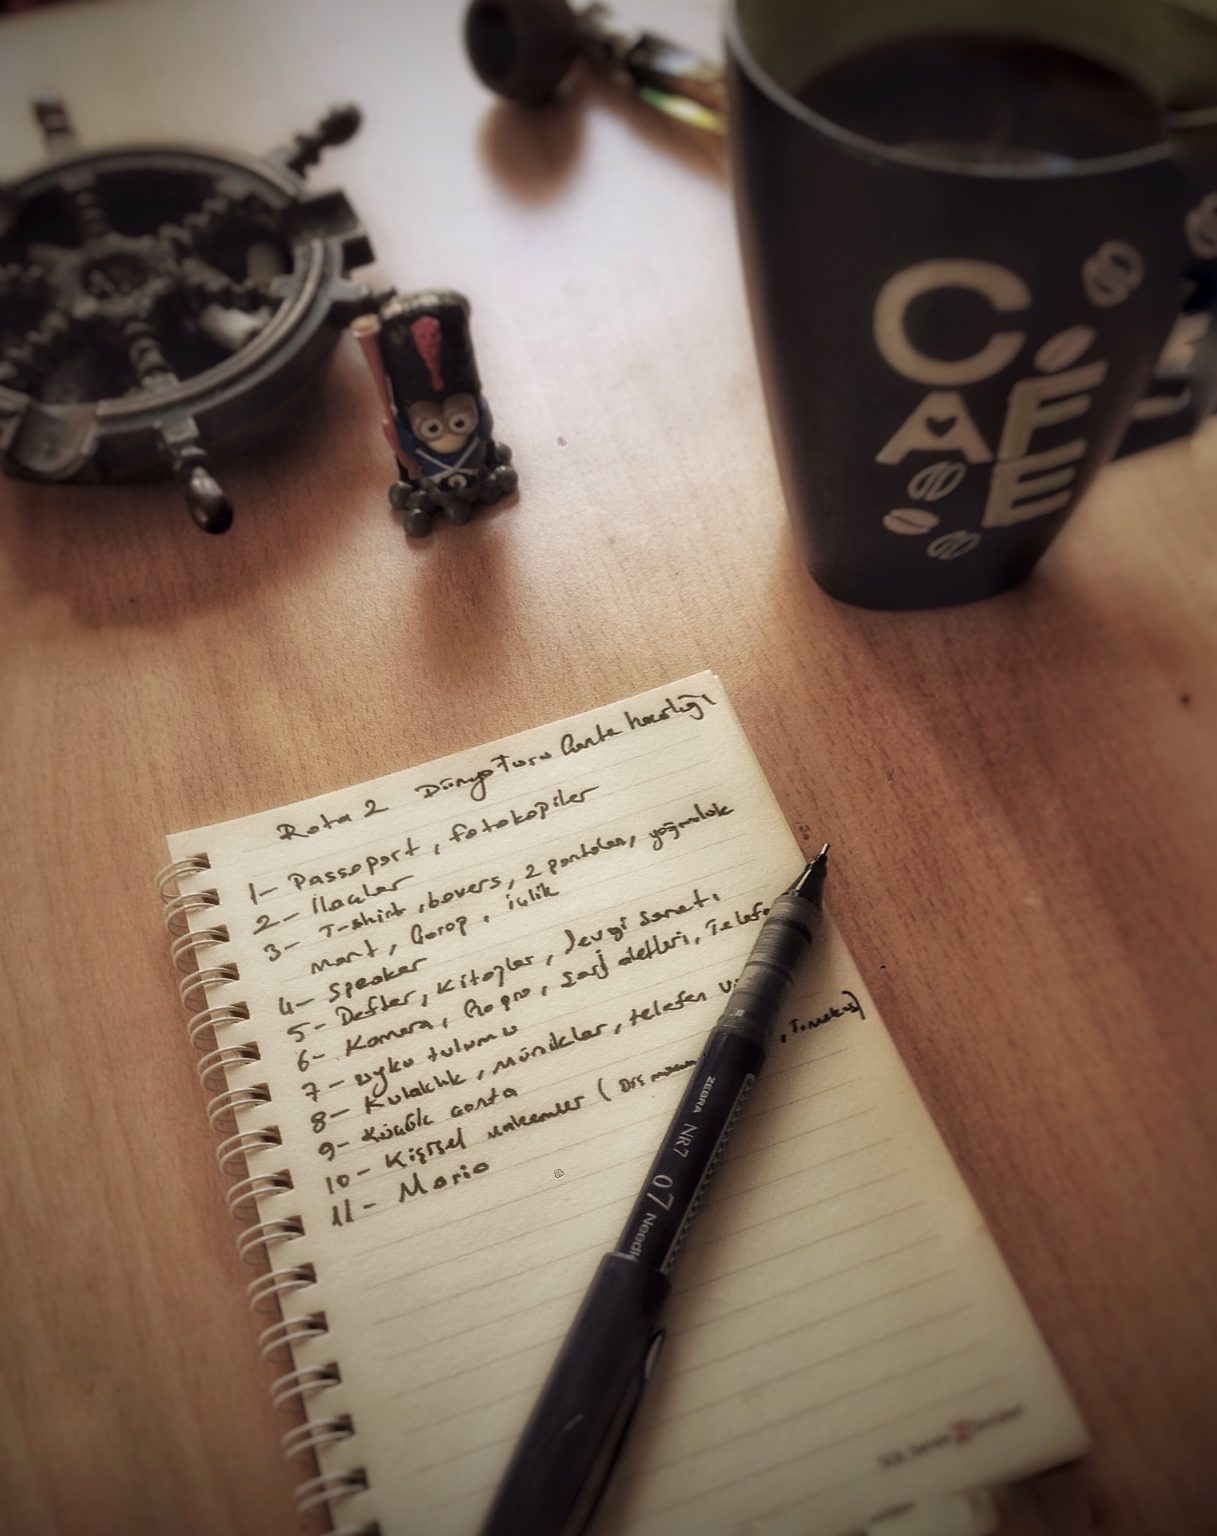 CAFE
Rota 2 Dünya Turu Çanta hazırlığı
1- Passaport, fotokopiler
2- İlaçlar
3- T-shirt, boxers, 2 pantolon, yağmurluk
mont, Çorap, içlik
4- Speaker
5- Defter, kitaplar, Sevgi Sanatı
6- Kamera, Gopro, Şarj aletleri, Telefo
7- uyku tulumu
8- Kulaklık, müzikler, telefon
9- Küçük çanta
10- Kişisel malzemeler (Diş macun
11- Mario
ZEBRA NR7 07 Needl